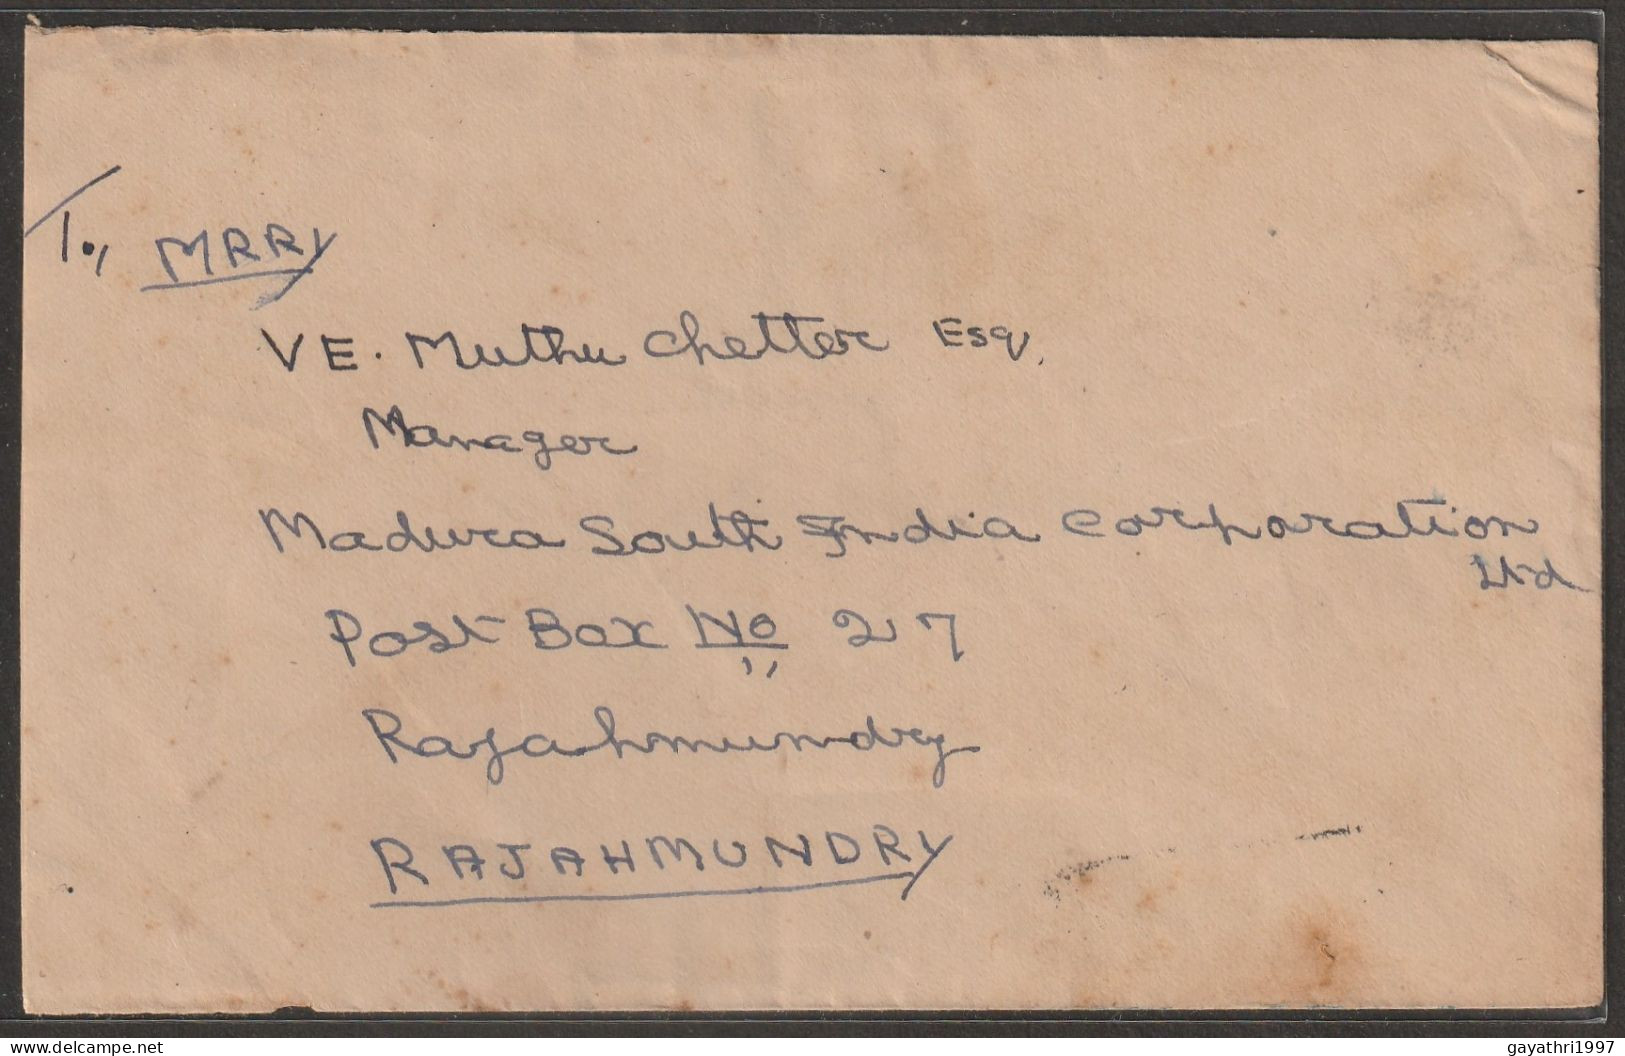 To, MRRY
VE. Muthu Chetter Esq.
Manager
Madura South India Corporation
Ltd
Post Box No 27
Rajahmundry
RAJAHMUNDRY
delcampe.net
gayathri1997